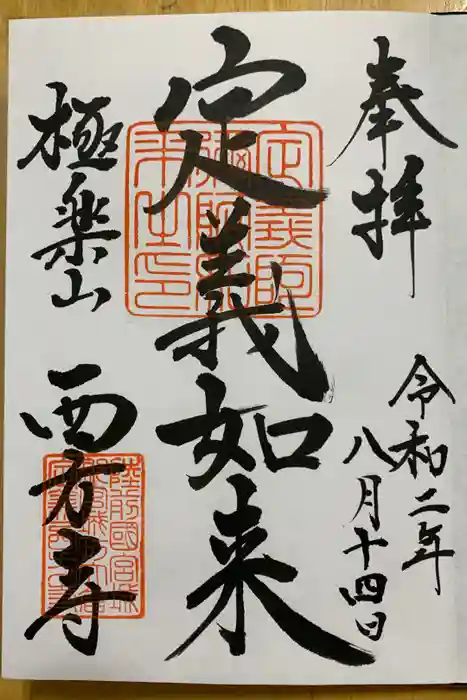 奉拝
令和二年
八月十四日
定義如来
極楽山
西方寺